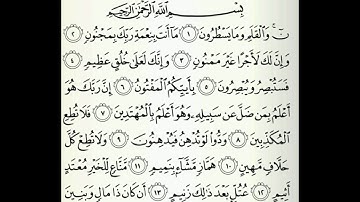 بِسْمِ اللَّهِ الرَّحْمَٰنِ الرَّحِيمِ
نٓ ۚ وَالْقَلَمِ وَمَا يَسْطُرُونَ ١ مَا أَنتَ بِنِعْمَةِ رَبِّكَ بِمَجْنُونٍ ٢
وَإِنَّ لَكَ لَأَجْرًا غَيْرَ مَمْنُونٍ ٣ وَإِنَّكَ لَعَلَىٰ خُلُقٍ عَظِيمٍ ٤
فَسَتُبْصِرُ وَيُبْصِرُونَ ٥ بِأَييِّكُمُ الْمَفْتُونُ ٦ إِنَّ رَبَّكَ هُوَ
أَعْلَمُ بِمَن ضَلَّ عَن سَبِيلِهِ وَهُوَ أَعْلَمُ بِالْمُهْتَدِينَ ٧ فَلَا تُطِعِ
الْمُكَذِّبِينَ ٨ وَدُّوا لَوْ تُدْهِنُ فَيُدْهِنُونَ ٩ وَلَا تُطِعْ كُلَّ
حَلَّافٍ مَّهِينٍ ١٠ هَمَّازٍ مَّشَّاءٍ بِنَمِيمٍ ١١ مَّنَّاعٍ لِّلْخَيْرِ مُعْتَدٍ
أَثِيمٍ ١٢ عُتُلٍّ بَعْدَ ذَٰلِكَ زَنِيمٍ ١٣ أَن كَانَ ذَا مَالٍ وَبَنِينَ